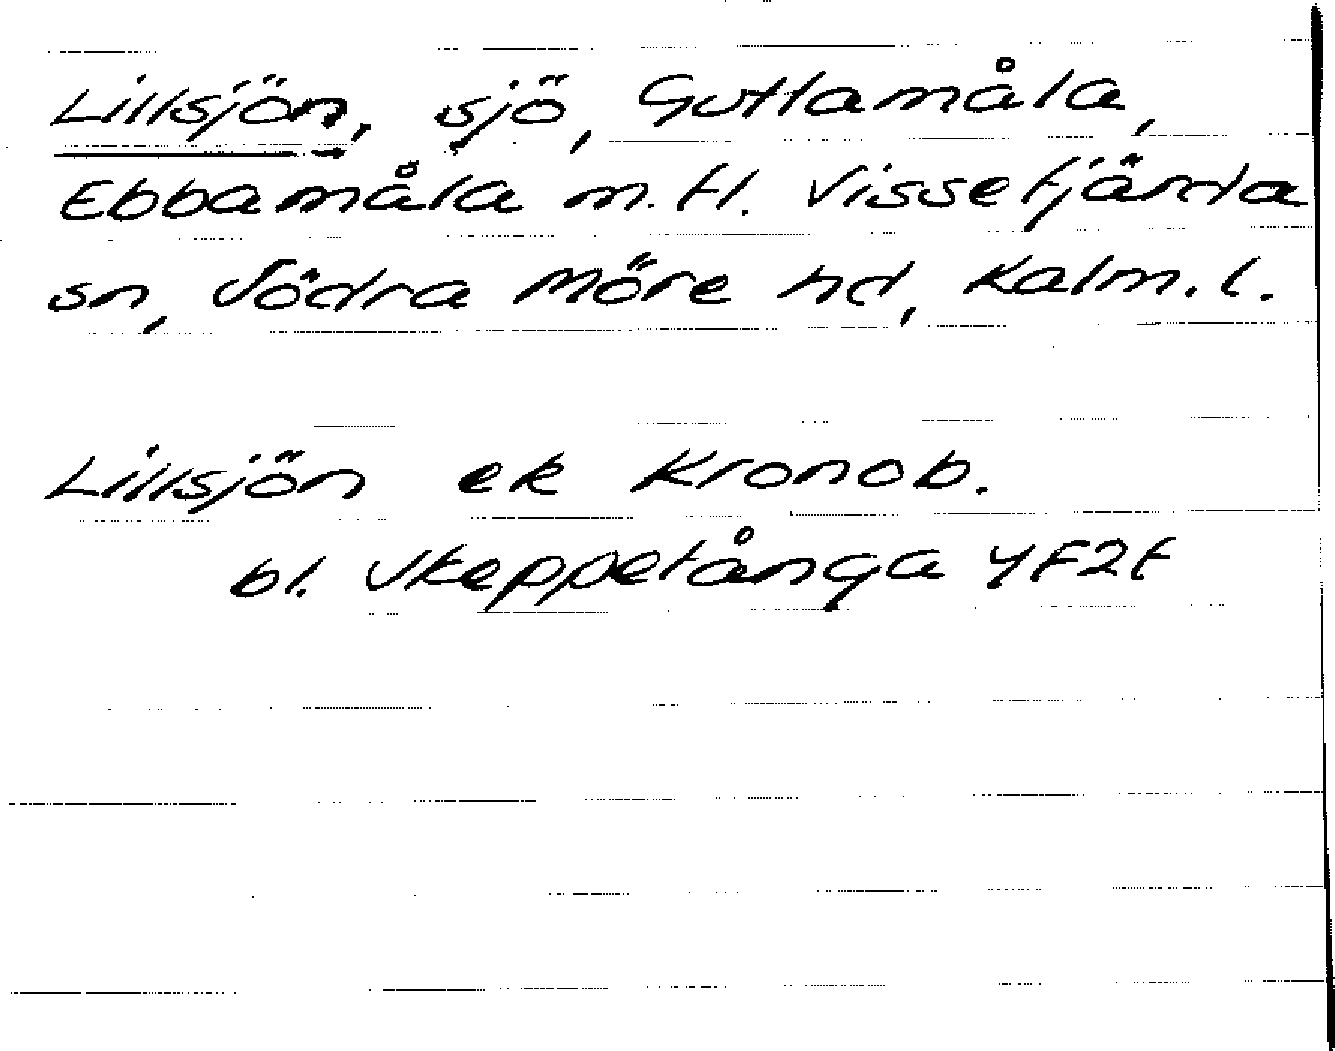 Lillsjön, sjö, Guttamåla,
Ebbamåla m. fl. Vissefjärda
sn, Södra Möre hd, Kalm. l.
Lillsjön ek Kronob.
bl. Skeppetånga 4F2f